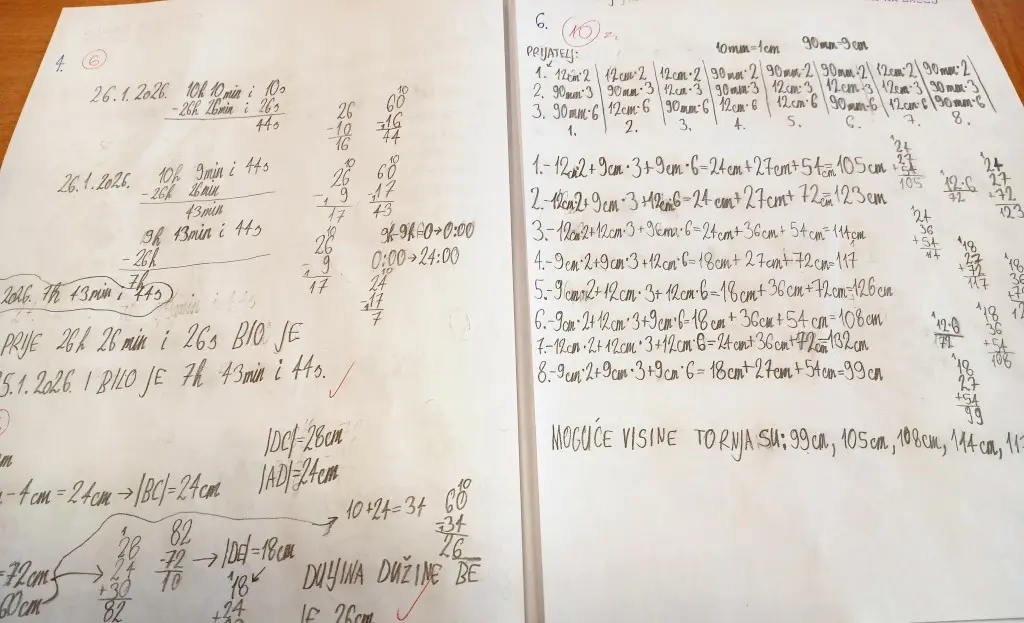 4. 6
26.1.2026. 10h 10min i 10s
-26h 26min i 26s
44s
26
-10
16
10
60
-16
44
26.1.2026. 10h 9min i 44s
-26h 26min
43min
10
26
- 9
1 17
10
60
-17
43
9h 43min i 44s
-26h
7h
10
26
- 9
1 17
9h-9h=0→0:00
0:00→24:00
24
-17
7
2026. 7h 43min i 44s
PRIJE 26h 26min i 26s BIO JE
5.1.2026. I BILO JE 7h 43min i 44s.
|DC|=28cm
|AD|=24cm
-4cm=24cm→|BC|=24cm
10+24=34
10
60
-34
26
=72cm
60cm
1
28
24
+30
82
82
-72
10
→|DE|=18cm
1
18
+24
DULJINA DUŽINE BE
JE 26cm
6. 10
PRIJATELJ:
10mm=1cm 90mm=9cm
1. 12cm·2 | 12cm·2 | 12cm·2 | 90mm·2 | 90mm·2 | 90mm·2 | 12cm·2 | 90mm·2
2. 90mm·3 | 90mm·3 | 12cm·3 | 90mm·3 | 12cm·3 | 12cm·3 | 12cm·3 | 90mm·3
3. 90mm·6 | 12cm·6 | 90mm·6 | 12cm·6 | 12cm·6 | 90mm·6 | 12cm·6 | 90mm·6
1. 2. 3. 4. 5. 6. 7. 8.
1.-12cm·2+9cm·3+9cm·6=24cm+27cm+54cm=105cm
2.-12cm·2+9cm·3+12cm·6=24cm+27cm+72cm=123cm
3.-12cm·2+12cm·3+9cm·6=24cm+36cm+54cm=114cm
4.-9cm·2+9cm·3+12cm·6=18cm+27cm+72cm=117
5.-9cm·2+12cm·3+12cm·6=18cm+36cm+72cm=126cm
6.-9cm·2+12cm·3+9cm·6=18cm+36cm+54cm=108cm
7.-12cm·2+12cm·3+12cm·6=24cm+36cm+72cm=132cm
8.-9cm·2+9cm·3+9cm·6=18cm+27cm+54cm=99cm
1
24
27
+54
105
12·6
72
1
24
27
+72
123
1
24
36
+54
114
1
18
27
+72
117
12·6
72
1
18
36
+54
108
1
18
27
+54
99
MOGUĆE VISINE TORNJA SU: 99cm, 105cm, 108cm, 114cm, 117